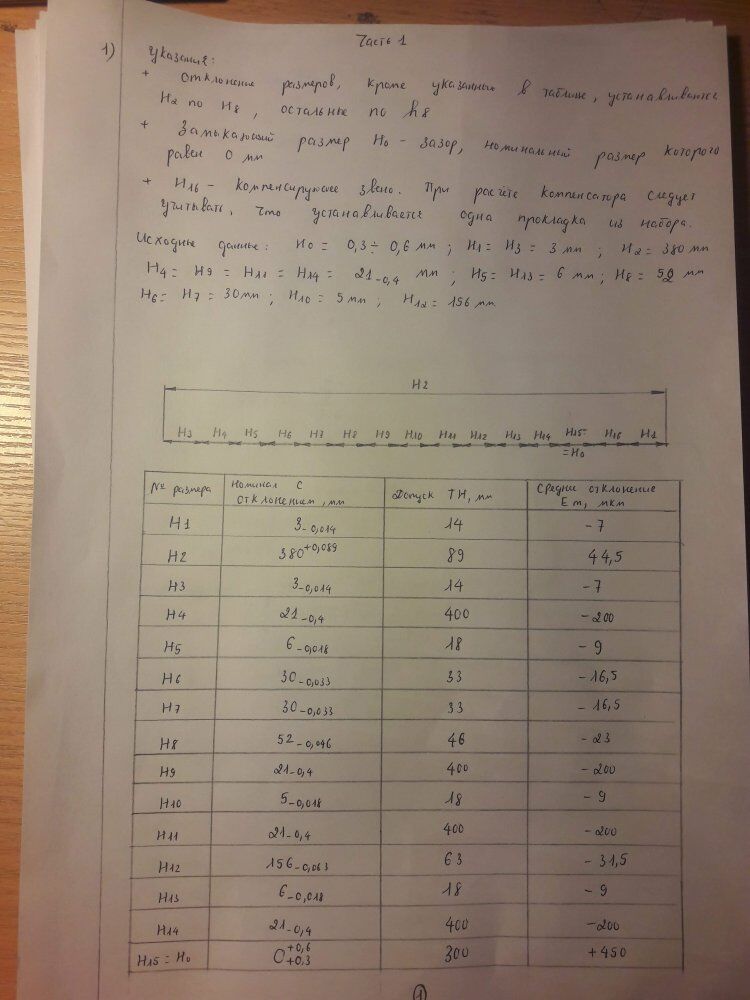 Часть 1
1)
Указания:
+ отклонение размеров, кроме указанных в таблице, устанавливается
H2 по H8, остальные по h8
+ Замыкающий размер H0 - зазор, номинальный размер которого
равен 0 мм
+ H16 - компенсирующее звено. При расчёте компенсатора следует
учитывать, что устанавливается одна прокладка из набора.
Исходные данные: H0 = 0,3÷0,6 мм; H1= H3 = 3 мм; H2 = 380 мм
H4 = H9 = H11 = H14 = 21-0,4 мм; H5 = H13 = 6 мм; H8 = 52 мм
H6 = H7 = 30мм; H10 = 5 мм; H12 = 156 мм
H2
H3 H4 H5 H6 H7 H8 H9 H10 H11 H12 H13 H14 H15= H16 H1
=H0
№ размера Номинал с отклонением, мм Допуск TH, мм Средние отклонение Em, мкм
H1 3-0,014 14 -7
H2 380+0,089 89 44,5
H3 3-0,014 14 -7
H4 21-0,4 400 -200
H5 6-0,018 18 -9
H6 30-0,033 33 -16,5
H7 30-0,033 33 -16,5
H8 52-0,046 46 -23
H9 21-0,4 400 -200
H10 5-0,018 18 -9
H11 21-0,4 400 -200
H12 156-0,063 63 -31,5
H13 6-0,018 18 -9
H14 21-0,4 400 -200
H15 = H0 0+0,6 +0,3 300 +450
1